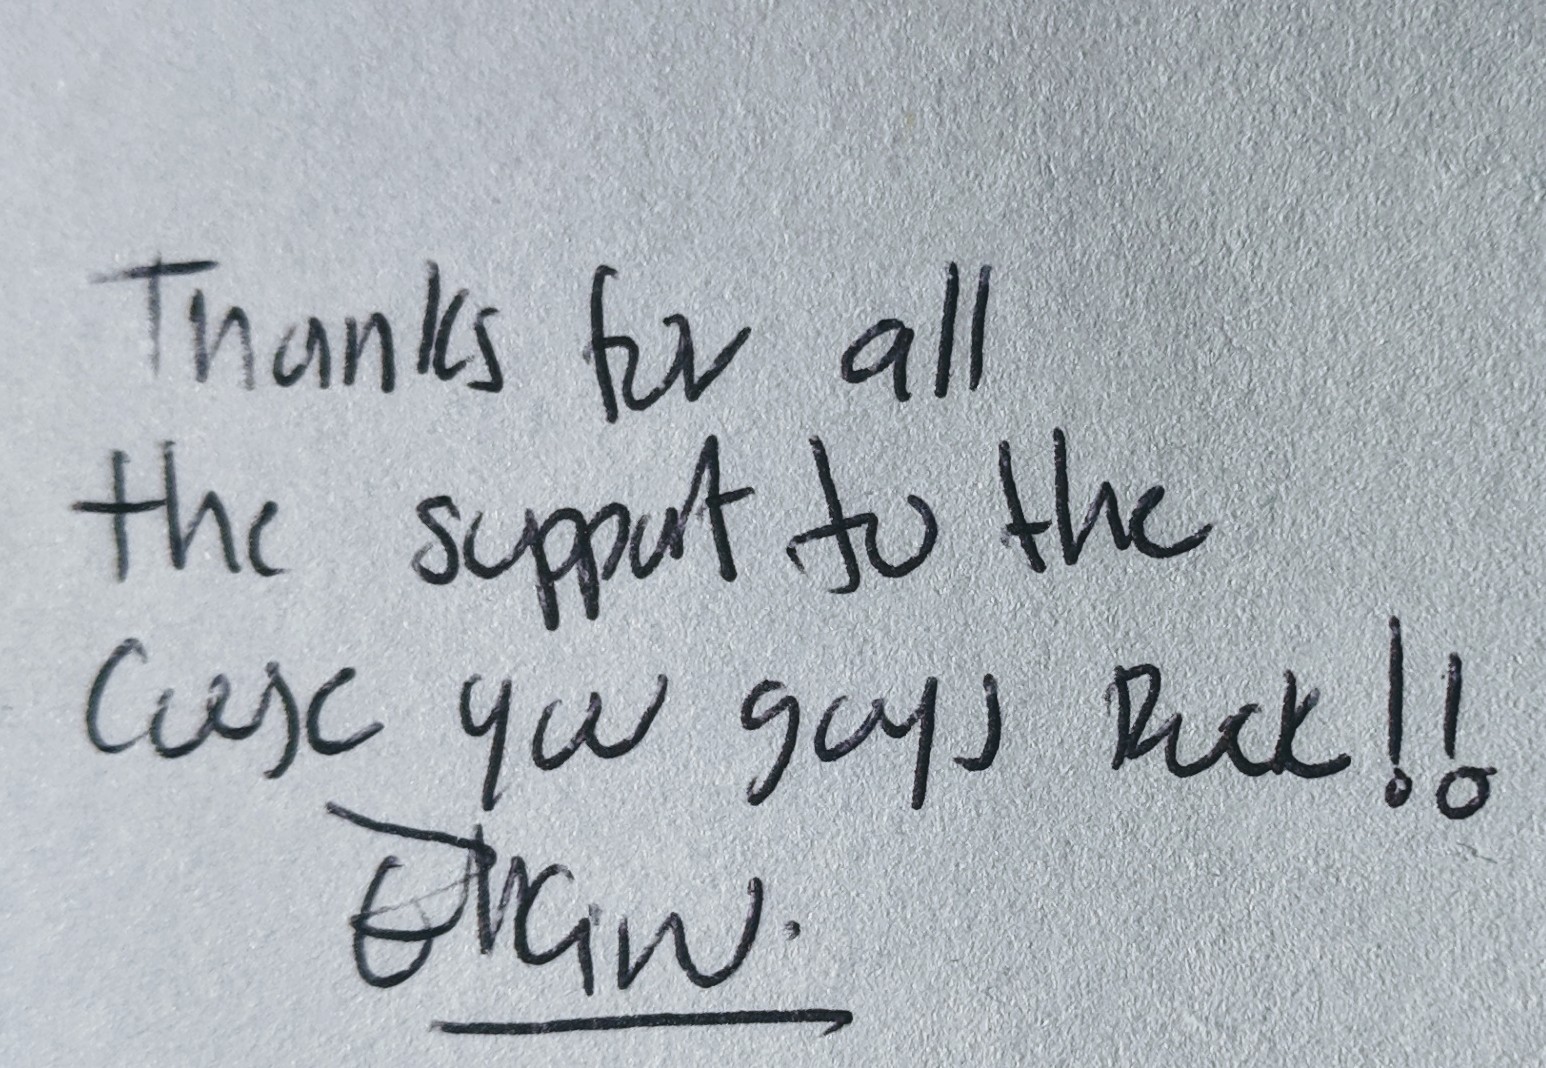 Thanks for all
the support to the
Case you guys Rock!!